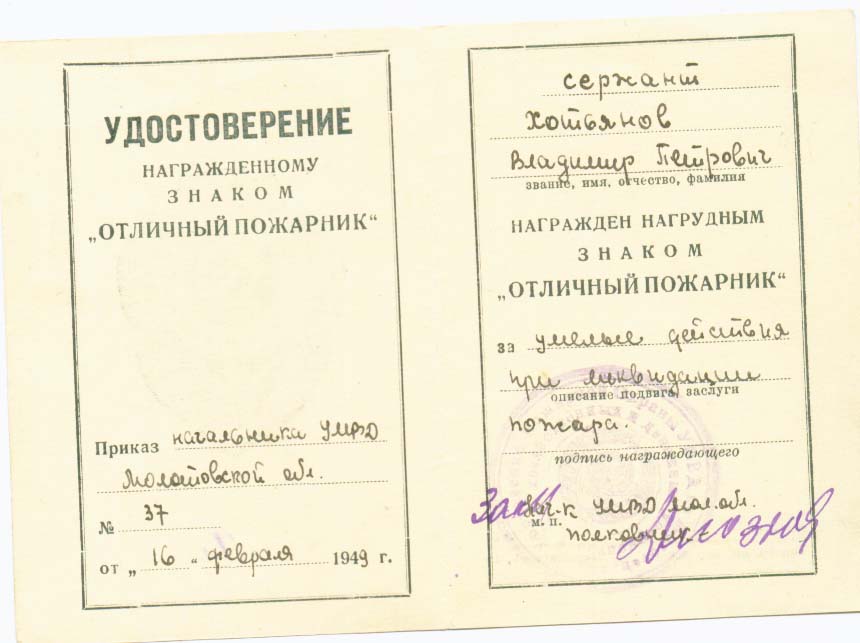 УДОСТОВЕРЕНИЕ
НАГРАЖДЕННОМУ
ЗНАКОМ
„ОТЛИЧНЫЙ ПОЖАРНИК“
Приказ начальника УМВД
Молотовской обл.
№ 37
от „16“ февраля 1949 г.
сержант
Хотьянов
Владимир Петрович
звание, имя, отчество, фамилия
НАГРАЖДЕН НАГРУДНЫМ
ЗНАКОМ
„ОТЛИЧНЫЙ ПОЖАРНИК“
за умелые действия
при ликвидации
описание подвига, заслуги
пожара.
подпись награждающего
Нач-к УМВД Мол. обл.
м. п.
полковник